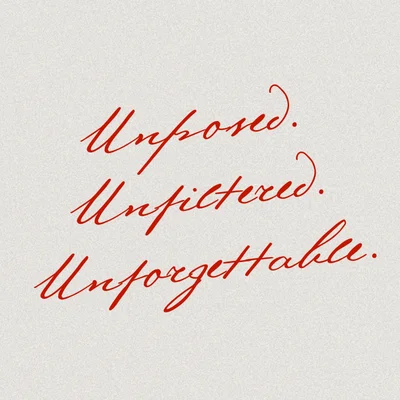 Unposed.
Unfiltered.
Unforgettable.